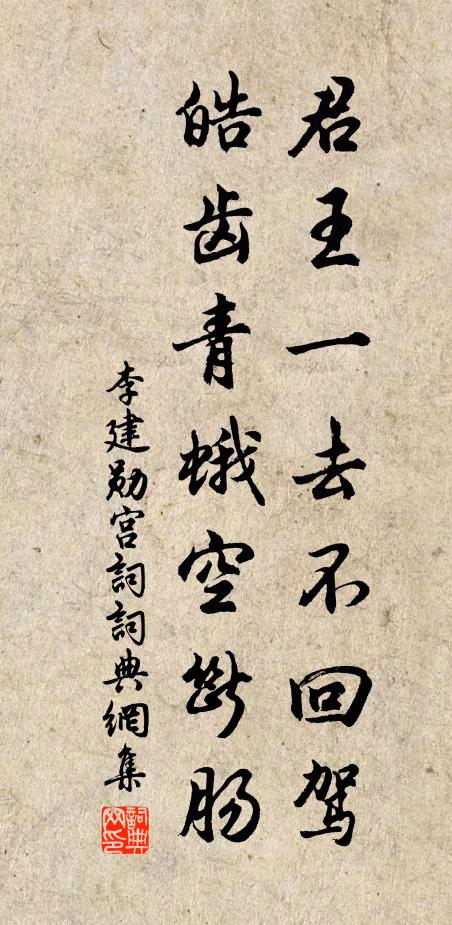 君王一去不回驾
皓齿青蛾空断肠
李建勋宫詞詞典網集
詞典網印